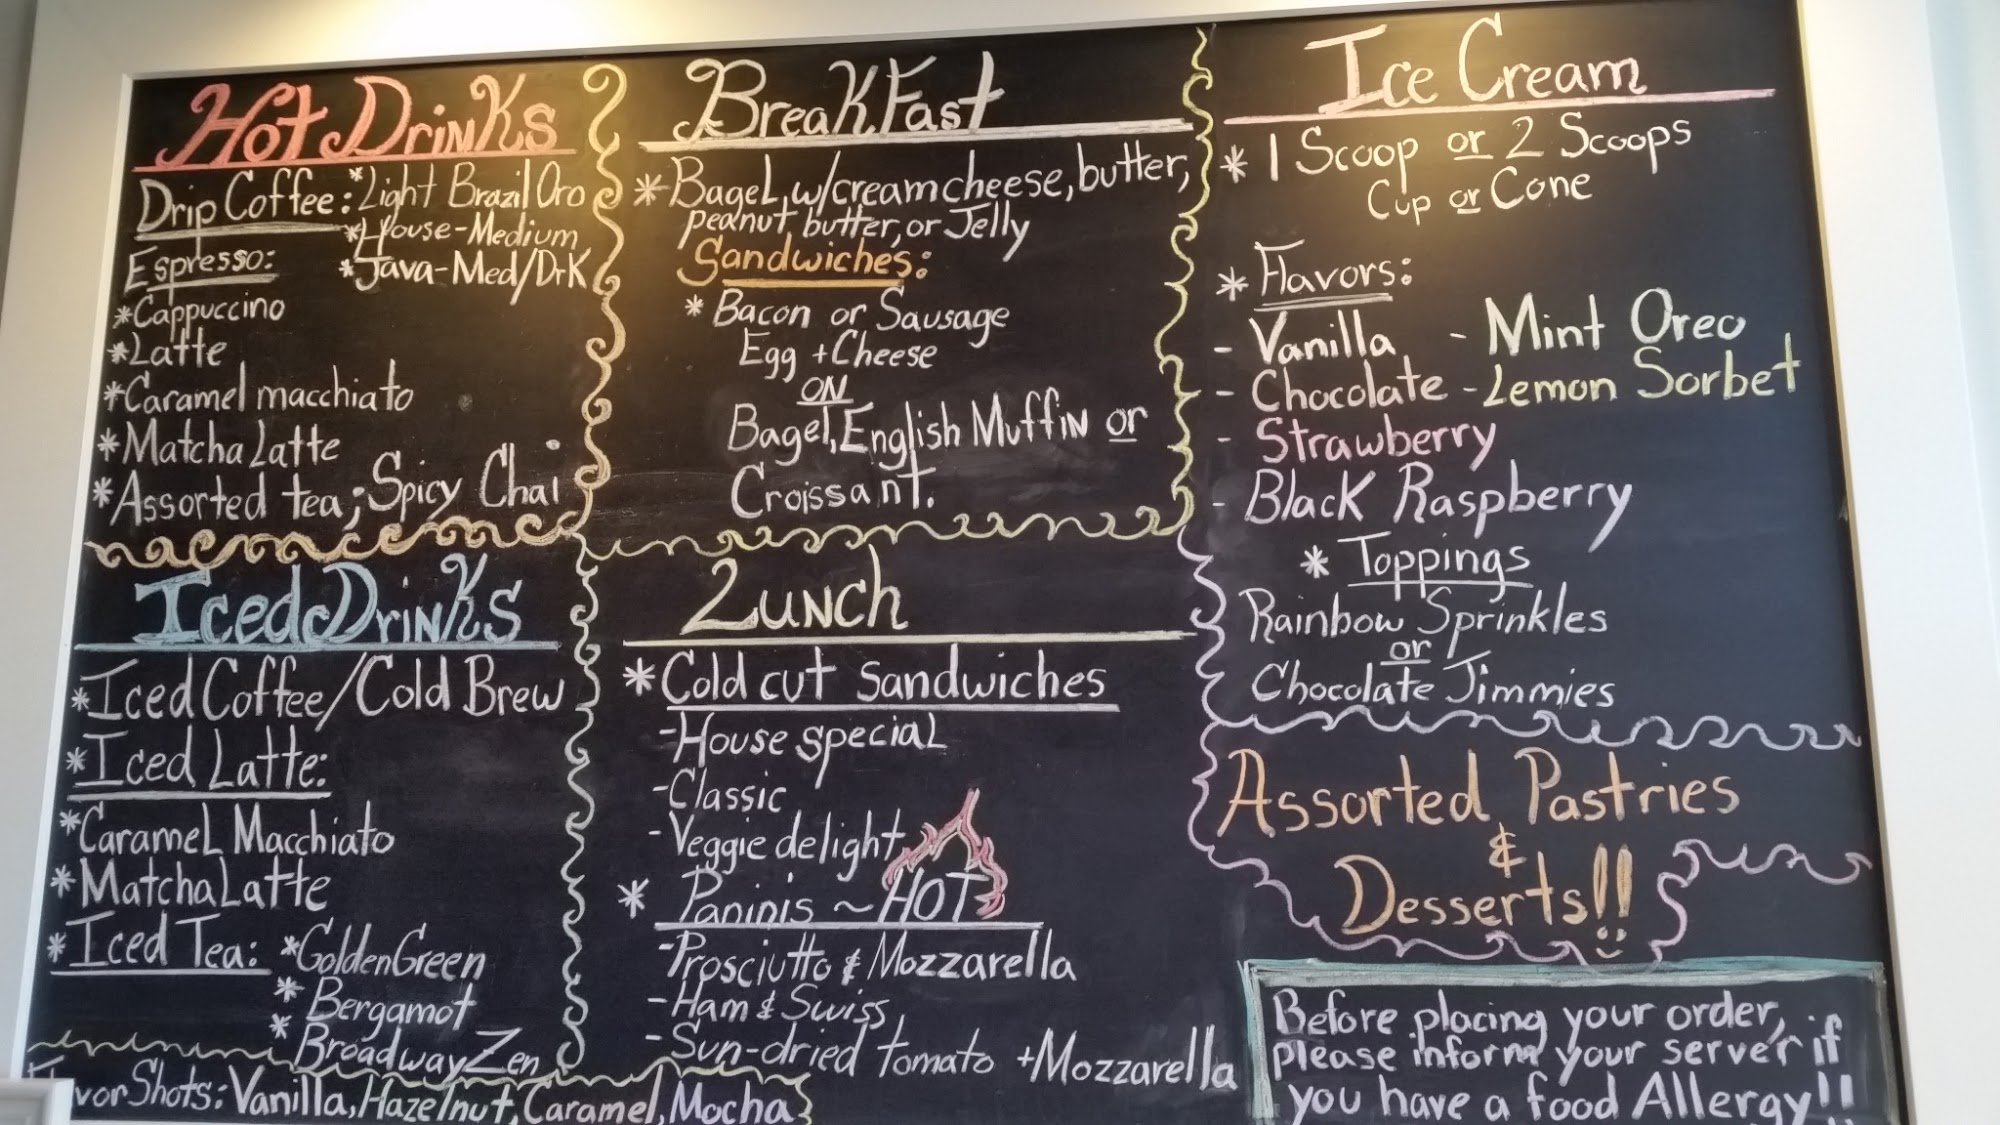 Hot Drinks
Drip Coffee: *Light Brazil Oro
*House-Medium
Espresso: *Java-Med/DrK
*Cappuccino
*Latte
*Caramel macchiato
*Matcha Latte
*Assorted tea; Spicy Chai
Iced Drinks
*Iced Coffee/Cold Brew
*Iced Latte:
*Caramel Macchiato
*Matcha Latte
*Iced Tea: *Golden Green
*Bergamot
*Broadway Zen
Shots: Vanilla, Hazelnut, Caramel, Mocha
BreakFast
*Bagel w/creamcheese, butter,
peanut butter, or Jelly
Sandwiches:
*Bacon or Sausage
Egg + Cheese
ON
Bagel, English Muffin or
Croissant.
Lunch
*Cold cut Sandwiches
-House special
-Classic
-Veggie delight
*Paninis ~ HOT
-Prosciutto & Mozzarella
-Ham & Swiss
-Sun-dried tomato + Mozzarella
Ice Cream
*1 Scoop or 2 Scoops
Cup or Cone
*Flavors:
-Vanilla -Mint Oreo
-Chocolate -Lemon Sorbet
-Strawberry
-Black Raspberry
*Toppings
Rainbow Sprinkles
or
Chocolate Jimmies
Assorted Pastries
&
Desserts!!
Before placing your order,
please inform your server if
you have a food Allergy!!